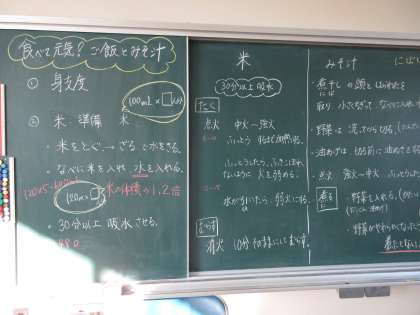 食べて元気? ご飯とみそ汁
① 身支度
100mL × □人分
② 米 準備 米
・米をとぐ → ざるで水をきる。
・なべに米を入れ、水を入れる。
米の体積の1.2倍
120mL × □
・30分以上 吸水させる。
米
30分以上 吸水
たく
点火 中火～強火
ふっとうするまで加熱する。
ふっとうしたら、ふきこぼれ
ないように 火を弱める。
水が引いたら、弱火にする。
むらす
消火 10分 そのままにしてむらす。
みそ汁
煮干しの頭とはらわたを
取り
・野菜は 洗ってから切る。
・油あげは 切る前に油ぬきする
・点火 強火～中火 ふっとう
煮る
・野菜を入れる。
・野菜がやわらかくなったら